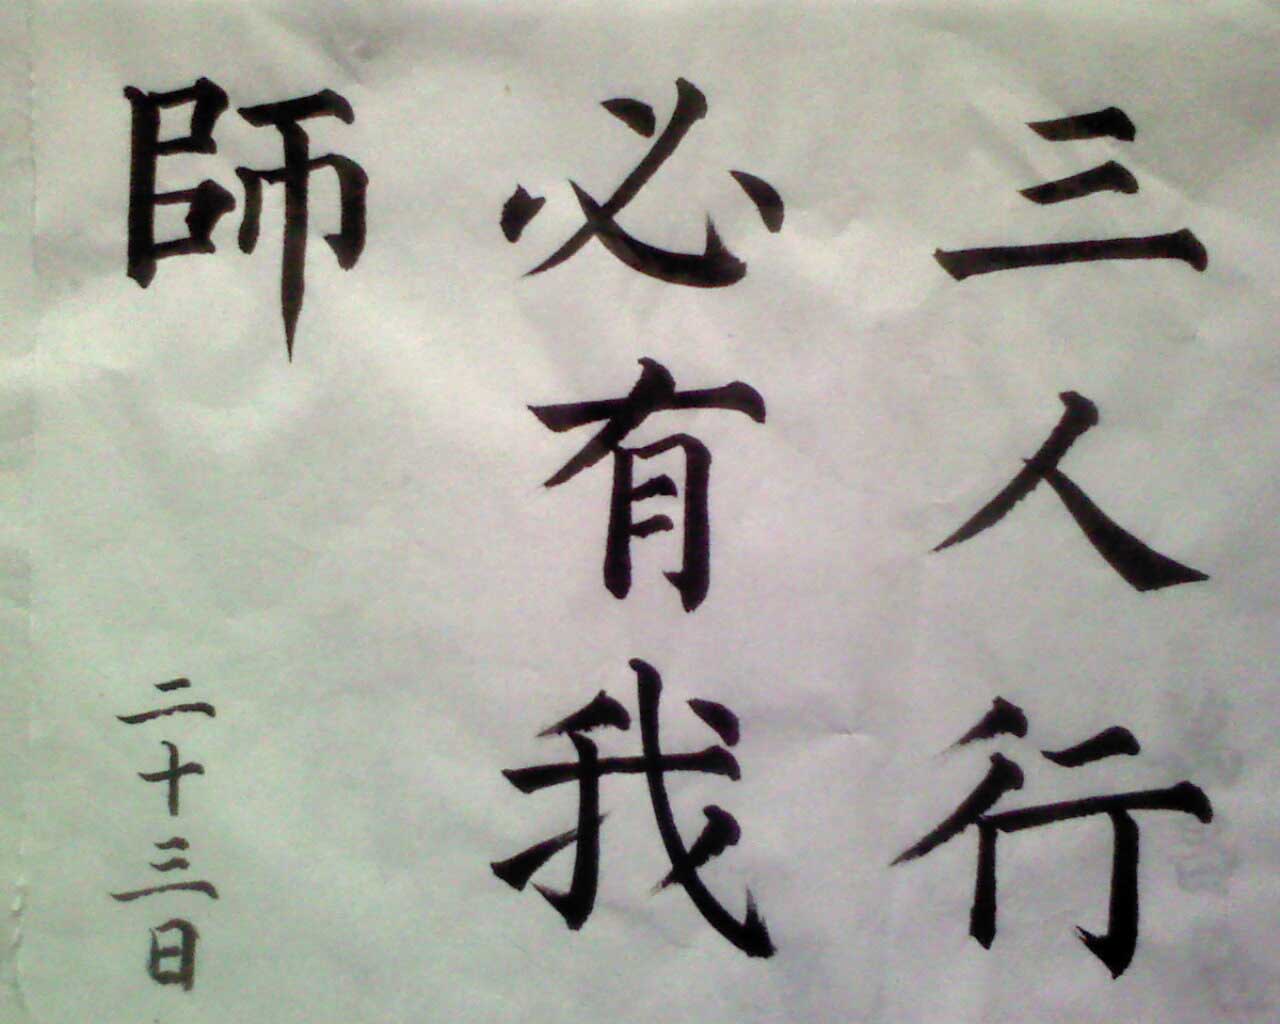 三人行
必有我
師
二十三日